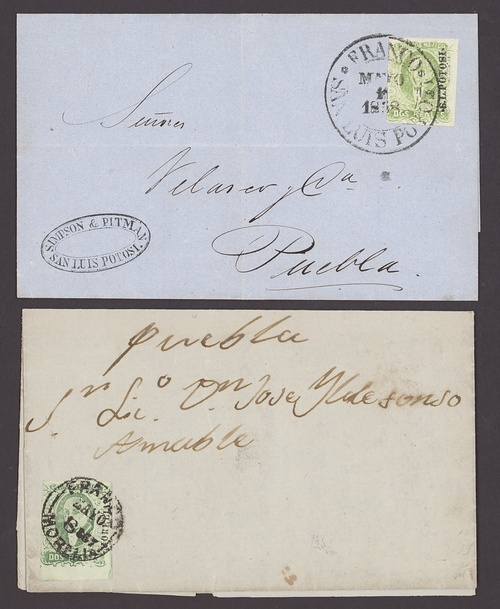 FRANCO
MAYO
1
1858
SAN LUIS POTOSI
S.L.POTOSI.
DOS
Señores
Velasco y Ca
Puebla.
SIMPSON & PITMAN
SAN LUIS POTOSI.
Puebla
Sr Lic.o Dn Jose Yldefonso
Amable
FRANCO
MAYO
MORELIA
DOS